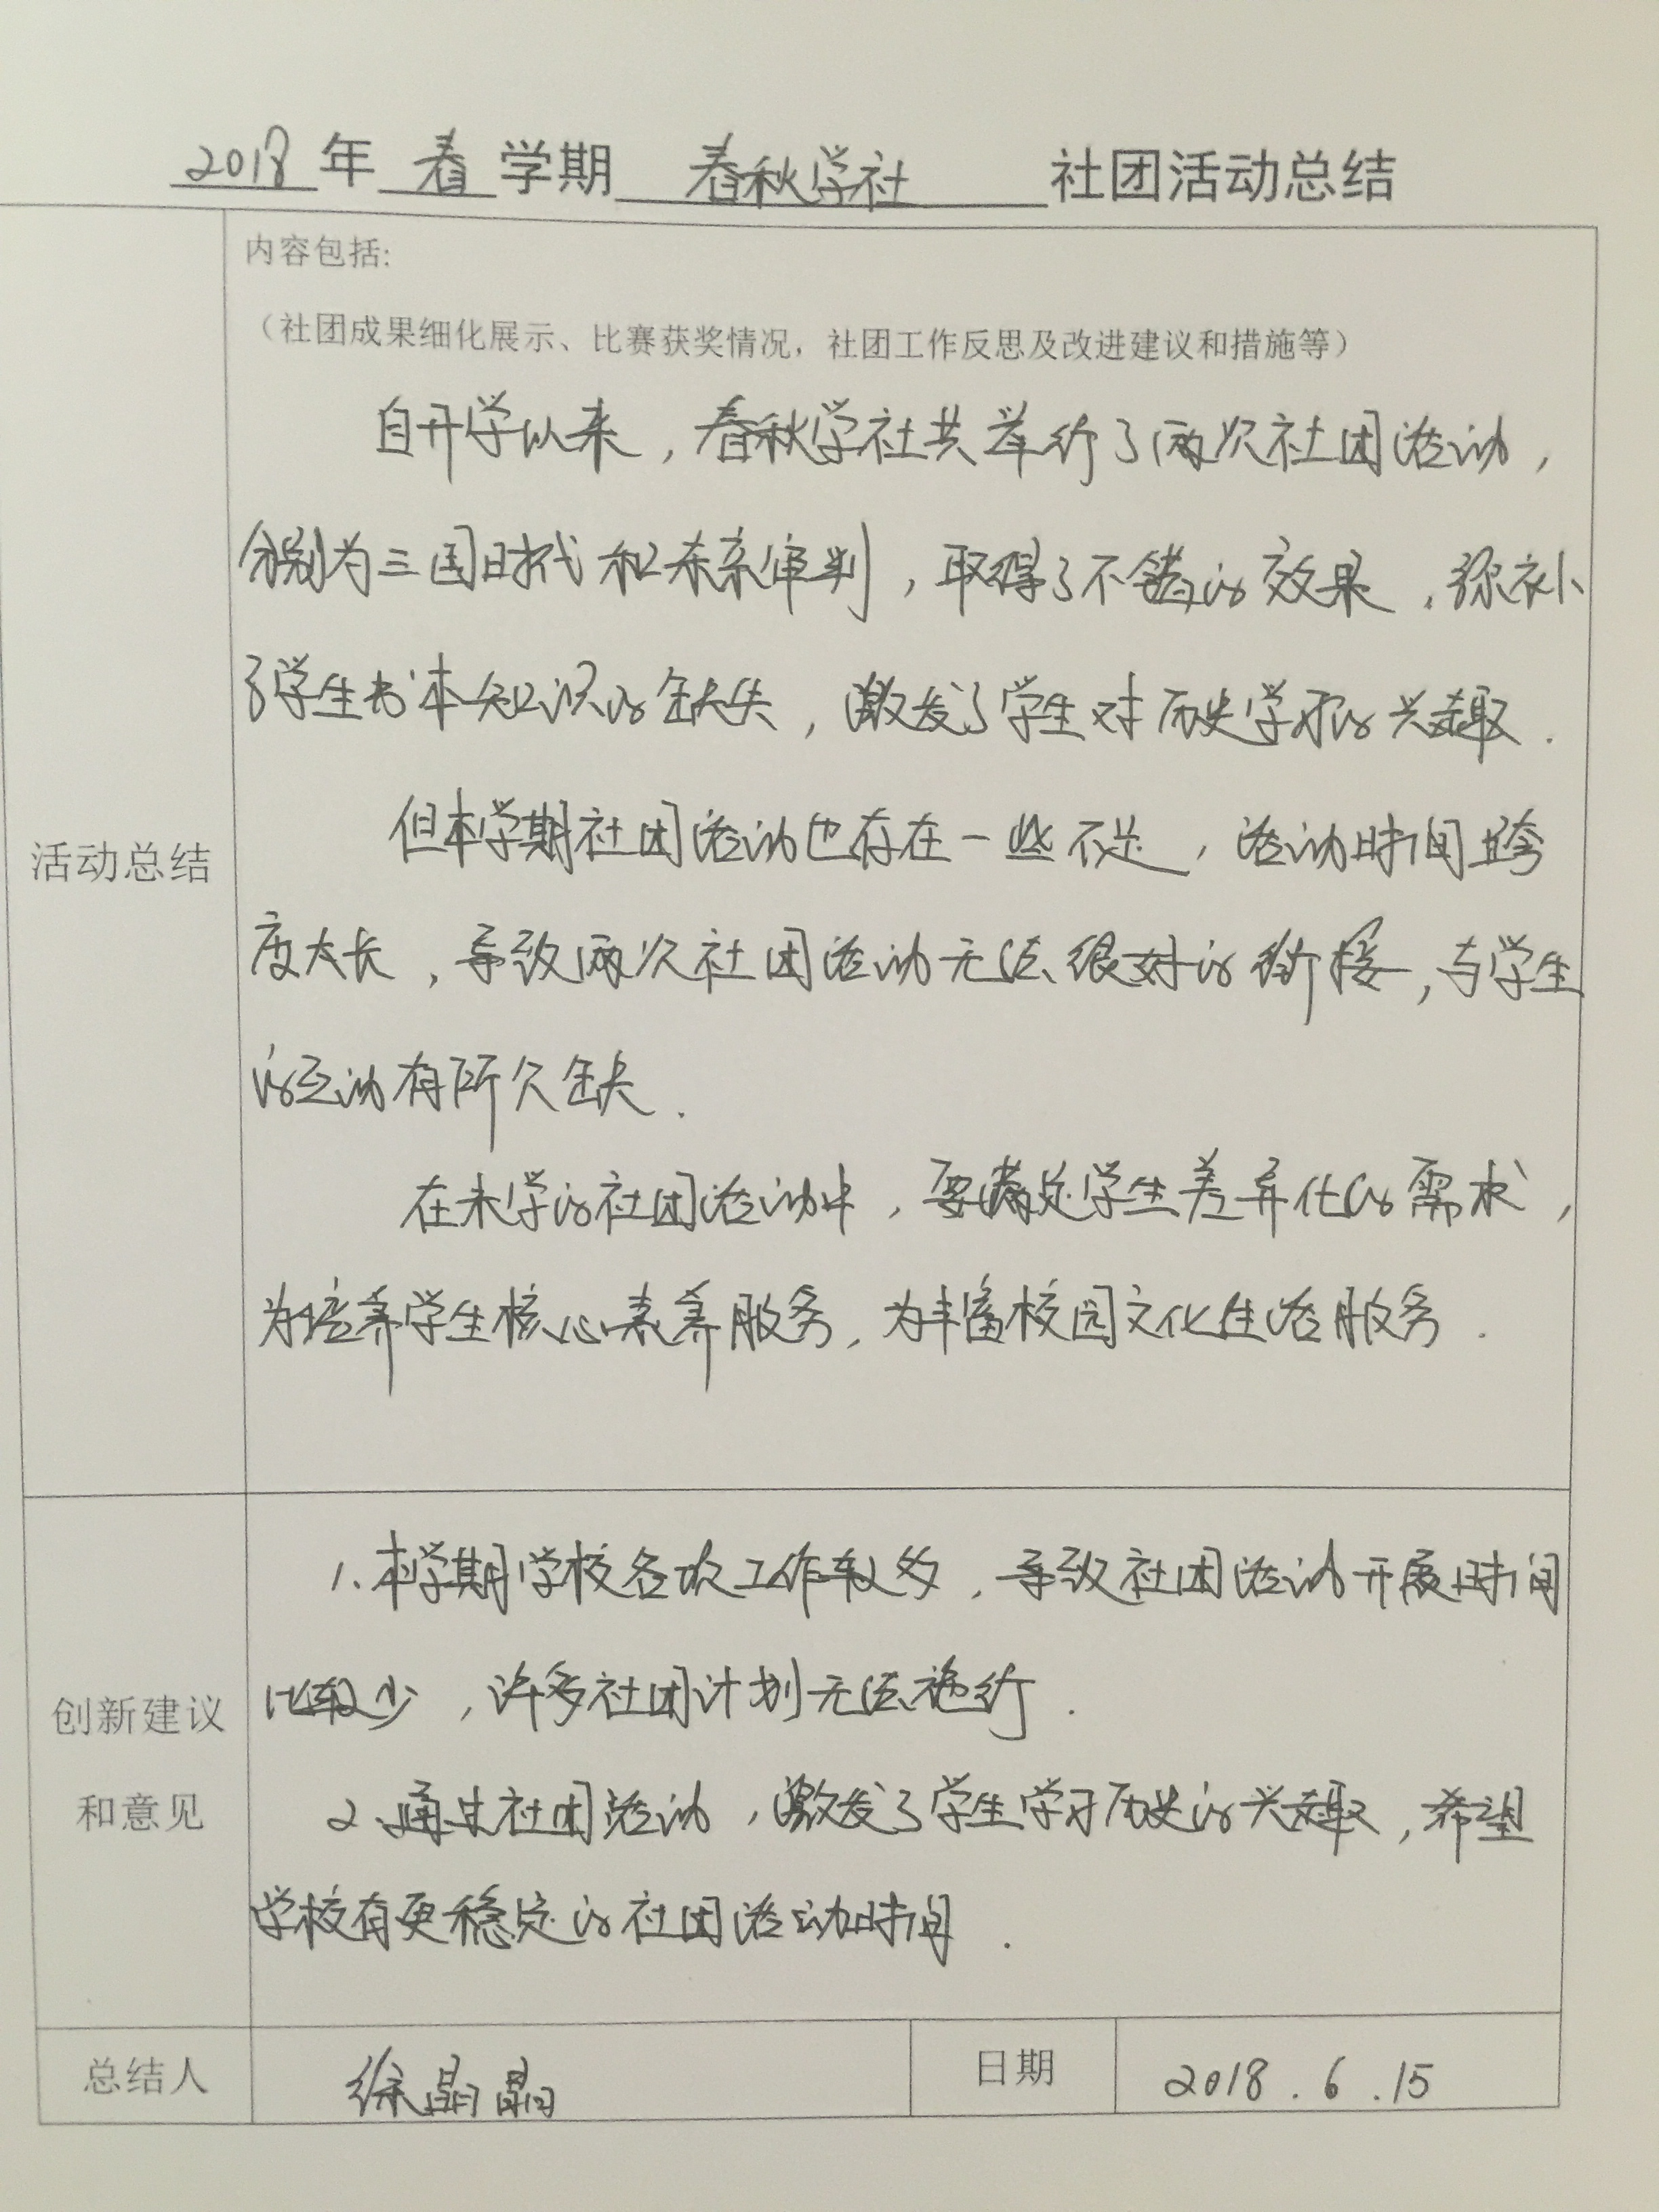 2018年春学期 春秋学社 社团活动总结
内容包括:
（社团成果细化展示、比赛获奖情况，社团工作反思及改进建议和措施等）
自开学以来，春秋学社共举行了两次社团活动，
分别为三国时代和东京审判，取得了不错的效果，弥补
了学生书本知识的缺失，激发了学生对历史学习的兴趣.
但本学期社团活动也存在一些不足，活动时间跨
活动总结
度太长，导致两次社团活动无法很好的衔接，与学生
的互动有所欠缺.
在未学的社团活动中，要满足学生差异化的需求，
为培养学生核心素养服务，为丰富校园文化生活服务.
1、本学期学校各项工作较多，导致社团活动开展时间
比较少，许多社团计划无法施行.
创新建议
和意见
2、通过社团活动，激发了学生学习历史的兴趣，希望
学校有更稳定的社团活动时间.
总结人 徐晶晶 日期 2018.6.15